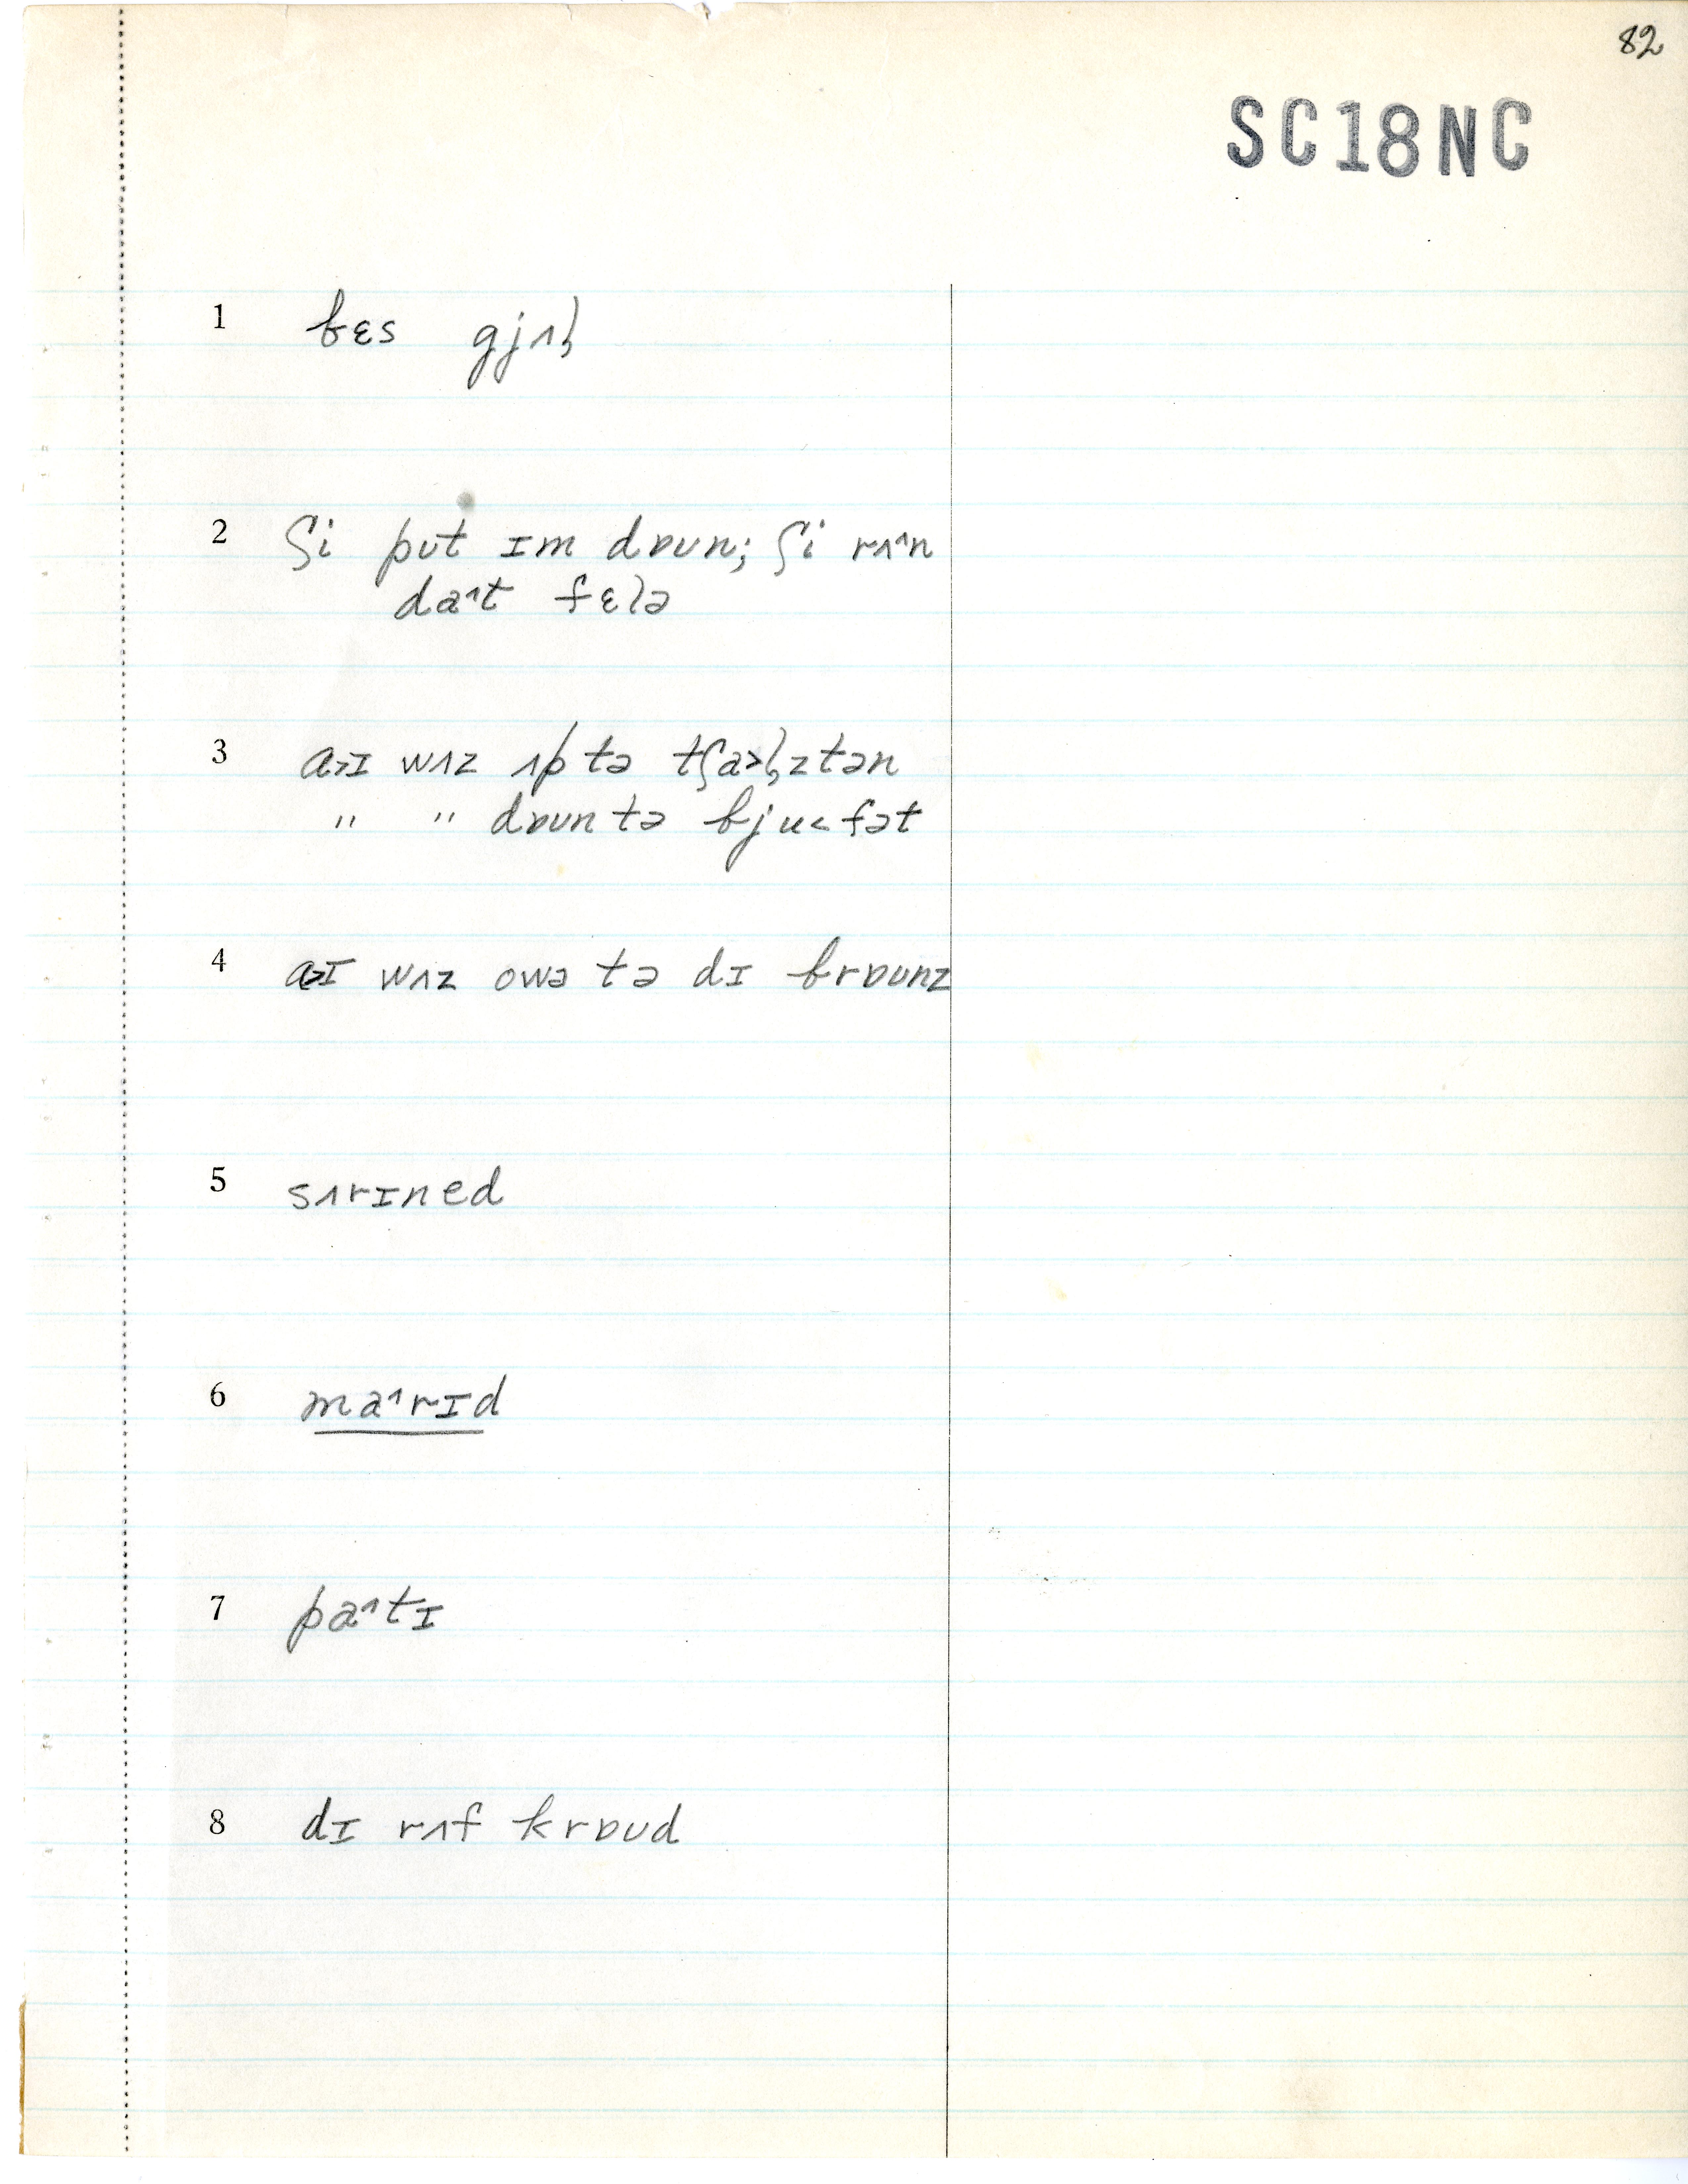 82
SC18NC
1 bɛs gjʌl̥
2 ʃi pʊt ɪm dɒʊn; ʃi rʌ^n
da^t fɛlə
3 ɑ>ɪ wʌz ʌp tə tʃa>l̥ztən
" " dɒʊn tə bjʉ<fət
4 ɑ>ɪ wʌz owə tə dɪ brɒʊnz
5 sʌrɪned
6 ma^rɪd
7 pa^tɪ
8 dɪ rʌf krɒʊd